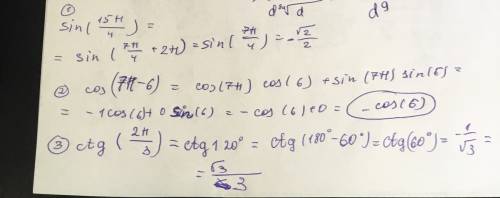 d³√d d9
①
sin(15π/4) =
= sin(7π/4 + 2π) = sin(7π/4) = -√2/2
② cos(7π-6) = cos(7π) cos(6) + sin(7π) sin(6) =
= -1cos(6) + 0 sin(6) = -cos(6)+0 = -cos(6)
③ ctg(2π/3) = ctg120° = ctg(180°-60°) = ctg(60°) = -1/√3 =
= √3/3